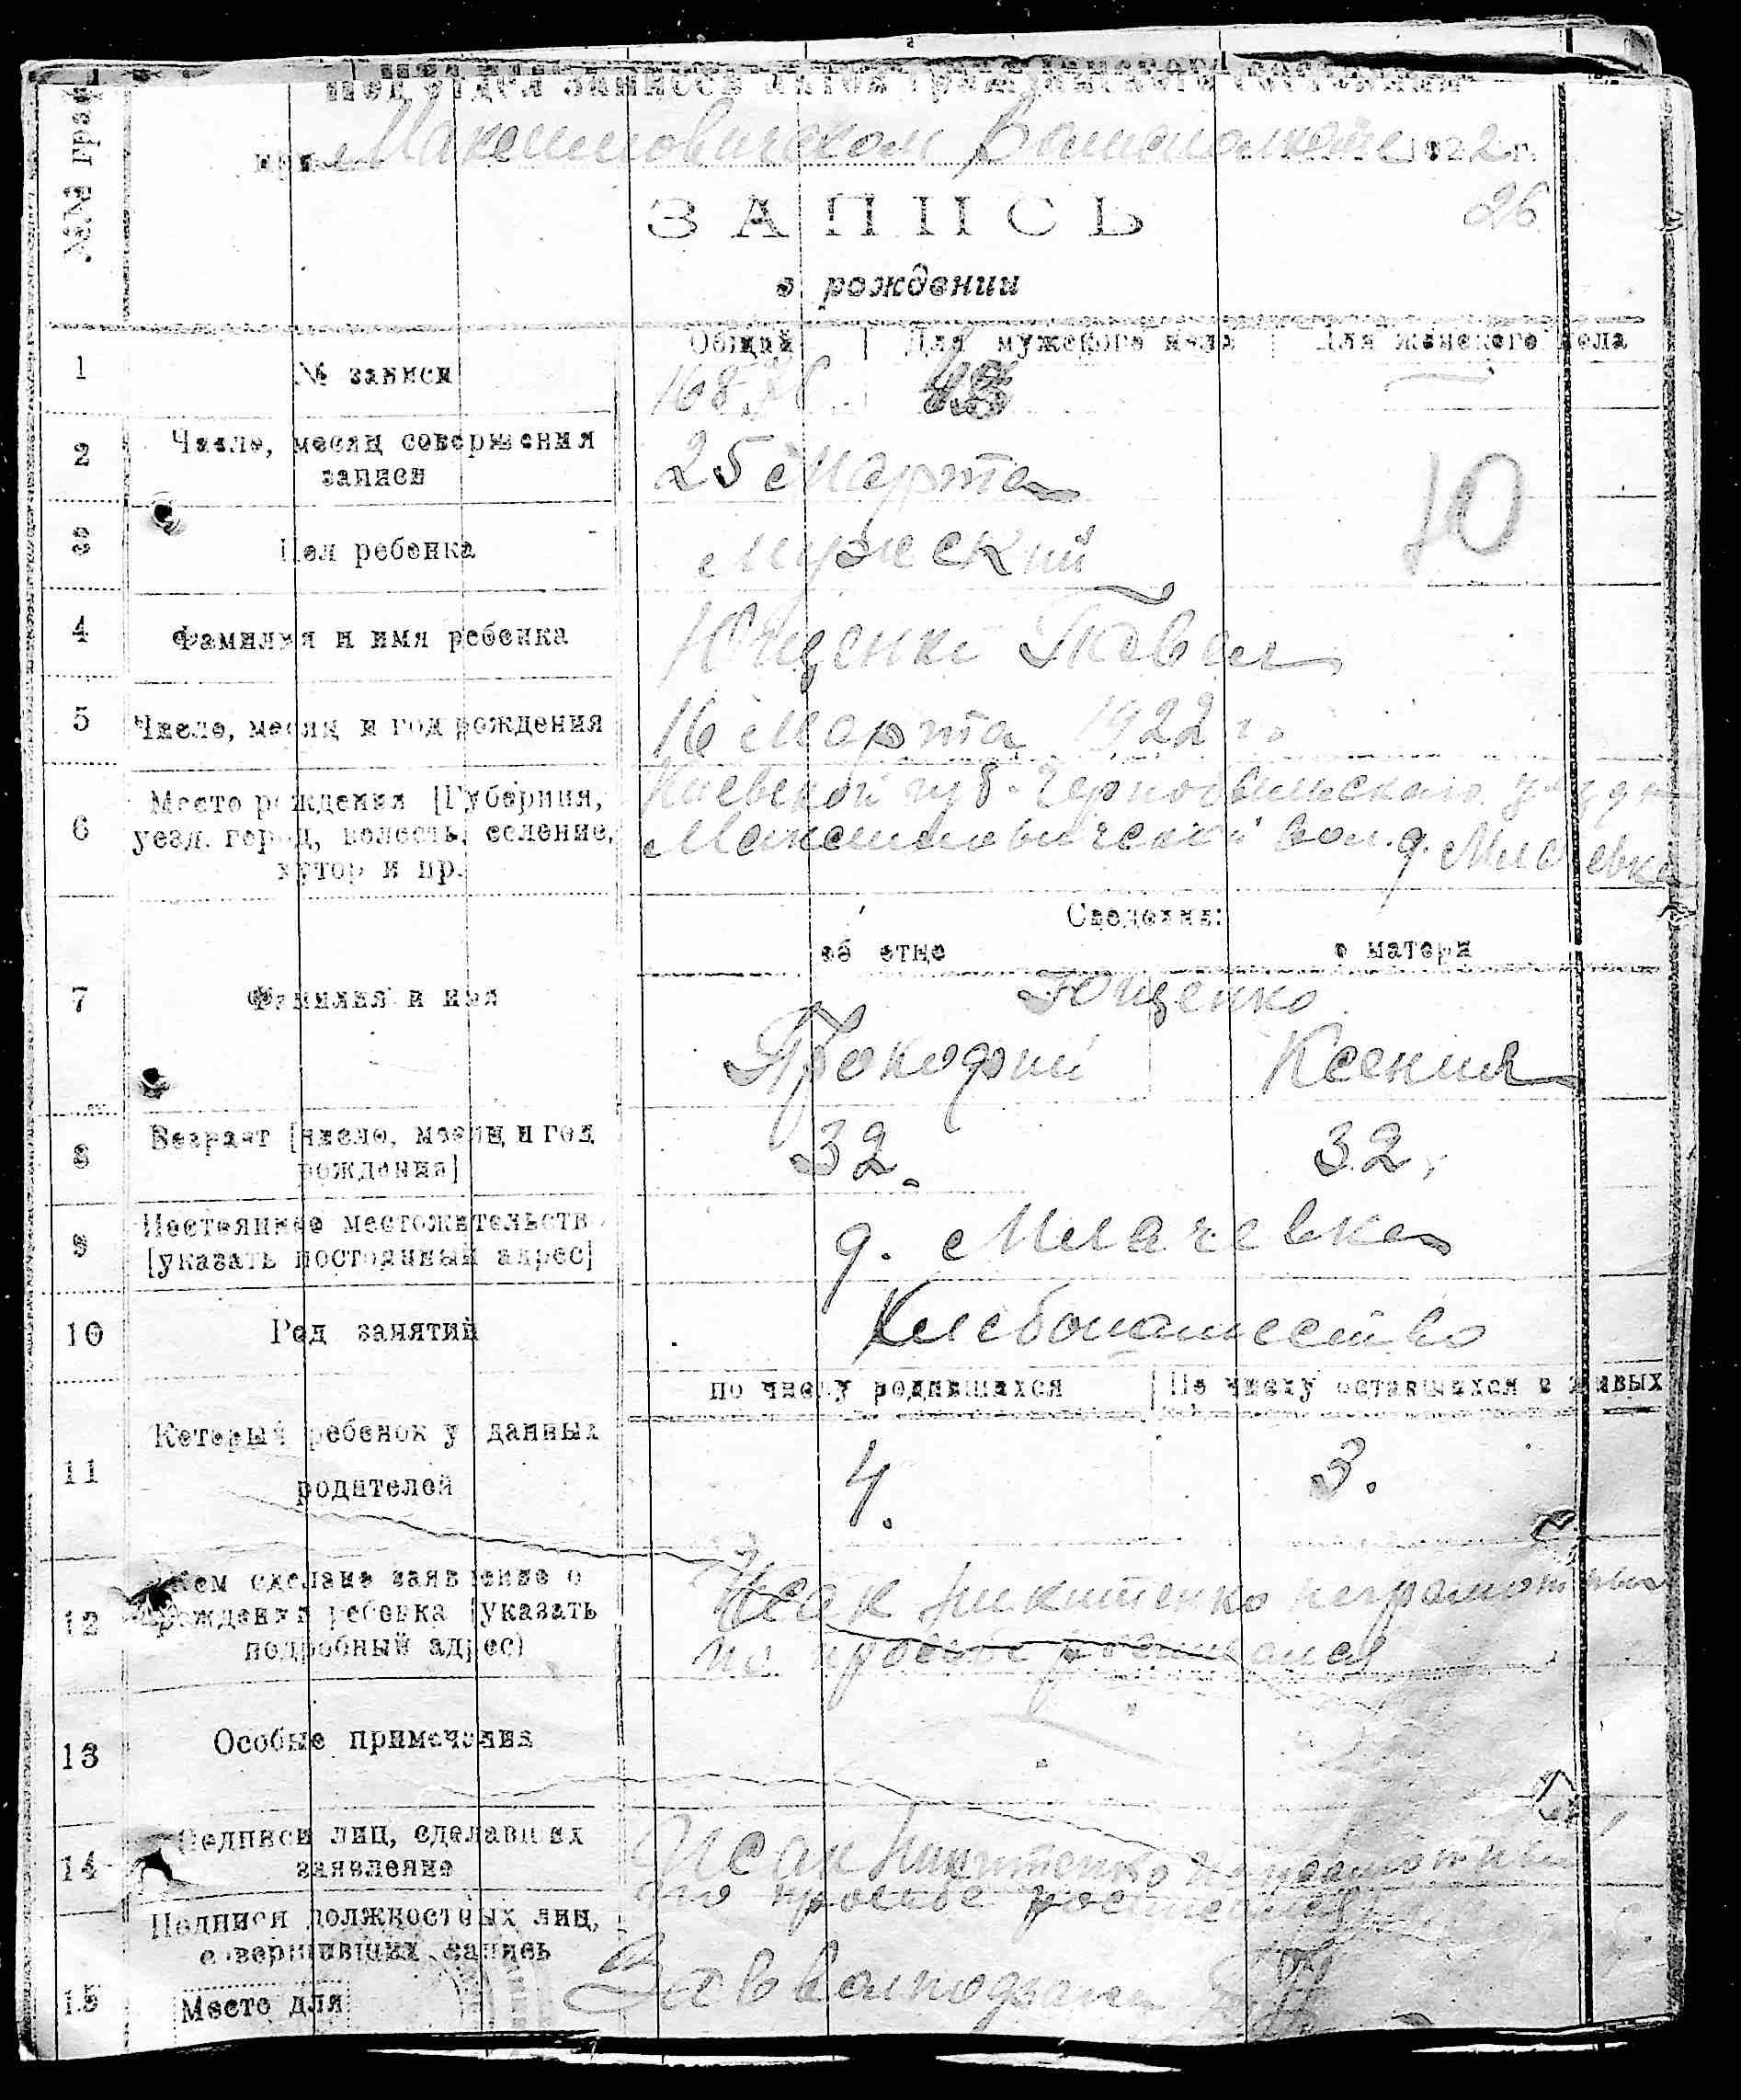 №№ граф
Подотдел записей актов гражданского состояния
при Максимовическом Волисполкоме 1922 г.
26
ЗАПИСЬ
о рождении
Общий | Для мужского пола | Для женского пола
1 № записи 168
2 Число, месяц совершения
записи 25 Марта
10
3 Пол ребенка Мужеский
4 Фамилия и имя ребенка Ющенко Павел
5 Число, месяц и год рождения 16 Марта 1922 г.
6 Место рождения [Губерния,
уезд, город, волость, селение,
хутор и пр.
Киевской губ. Чернобыльскаго уезда
Максимовической вол. д. Мшачевка
Сведения:
об отце о матери
7 Фамилия и имя Ющенко
Прокофий Ксения
8 Возраст [число, месяц и год
рождения] 32. 32,
9 Постоянное местожительство
[указать постоянный адрес] д. Млачевка
10 Род занятий Хлебопашество
по числу родившихся | По числу оставшихся в живых
11 Который ребенок у данных
родителей 4. 3.
12 Кем сделано заявление о
рождении ребенка [указать
подробный адрес)
Исак Никитенко неграмотный
по просьбе росписался
13 Особые примечания
14 Подписи лиц, сделавших
заявление
Исак Никитенко неграмотный
по просьбе
Подписи должностных лиц,
совершивших запись
15 Место для
Зав